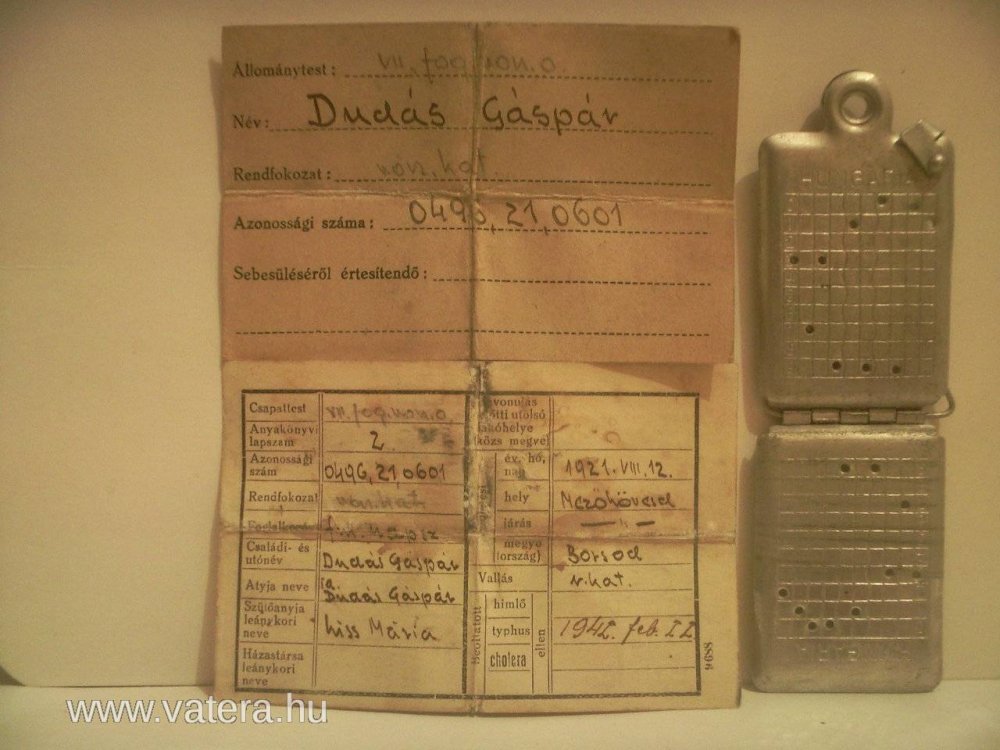 Állománytest: VII. fog. von. o.
Név: Dudás Gáspár
Rendfokozat:
Azonossági száma: 0496,21,0601
Sebesüléséről értesítendő:
Csapattest VII. fog. von. o
Anyakönyv lapszám 2
Azonossági szám 0496,21,0601
Rendfokozat
Családi- és utónév Dudás Gáspár
Atyja neve Dudás Gáspár
Szülőanyja leánykori neve Kiss Mária
Házastársa leánykori neve
utolsó
(közs megye)
év, hó, nap 1921. VIII. 12.
hely Mezőkövesd
járás — " —
megye (ország) Borsod
Vallás r. kat.
Beoltatott himlő typhus cholera ellen 1942. feb. 22
9688
HUNGARIA
HUNGARIA
www.vatera.hu